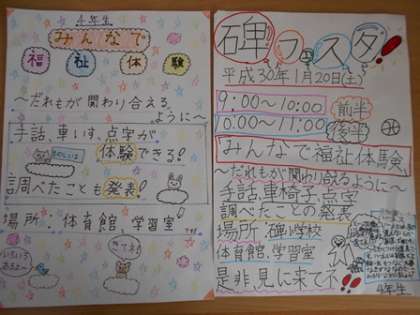 4年生
みんなで
福祉体験
〜だれもが関わり合える
ように〜
手話、車いす、点字が
体験できる!
調べたことも発表!
場所:体育館、学習室
きてネ!
碑フェスタ!!
平成30年1月20日(土)
9:00〜10:00 前半
10:00〜11:00 後半
「みんなで福祉体験
〜だれもが関わり合えるように〜」
手話、車椅子、点字
調べたことの発表
場所 碑小学校
体育館、学習室
是非、見に来てネ!!
4年生